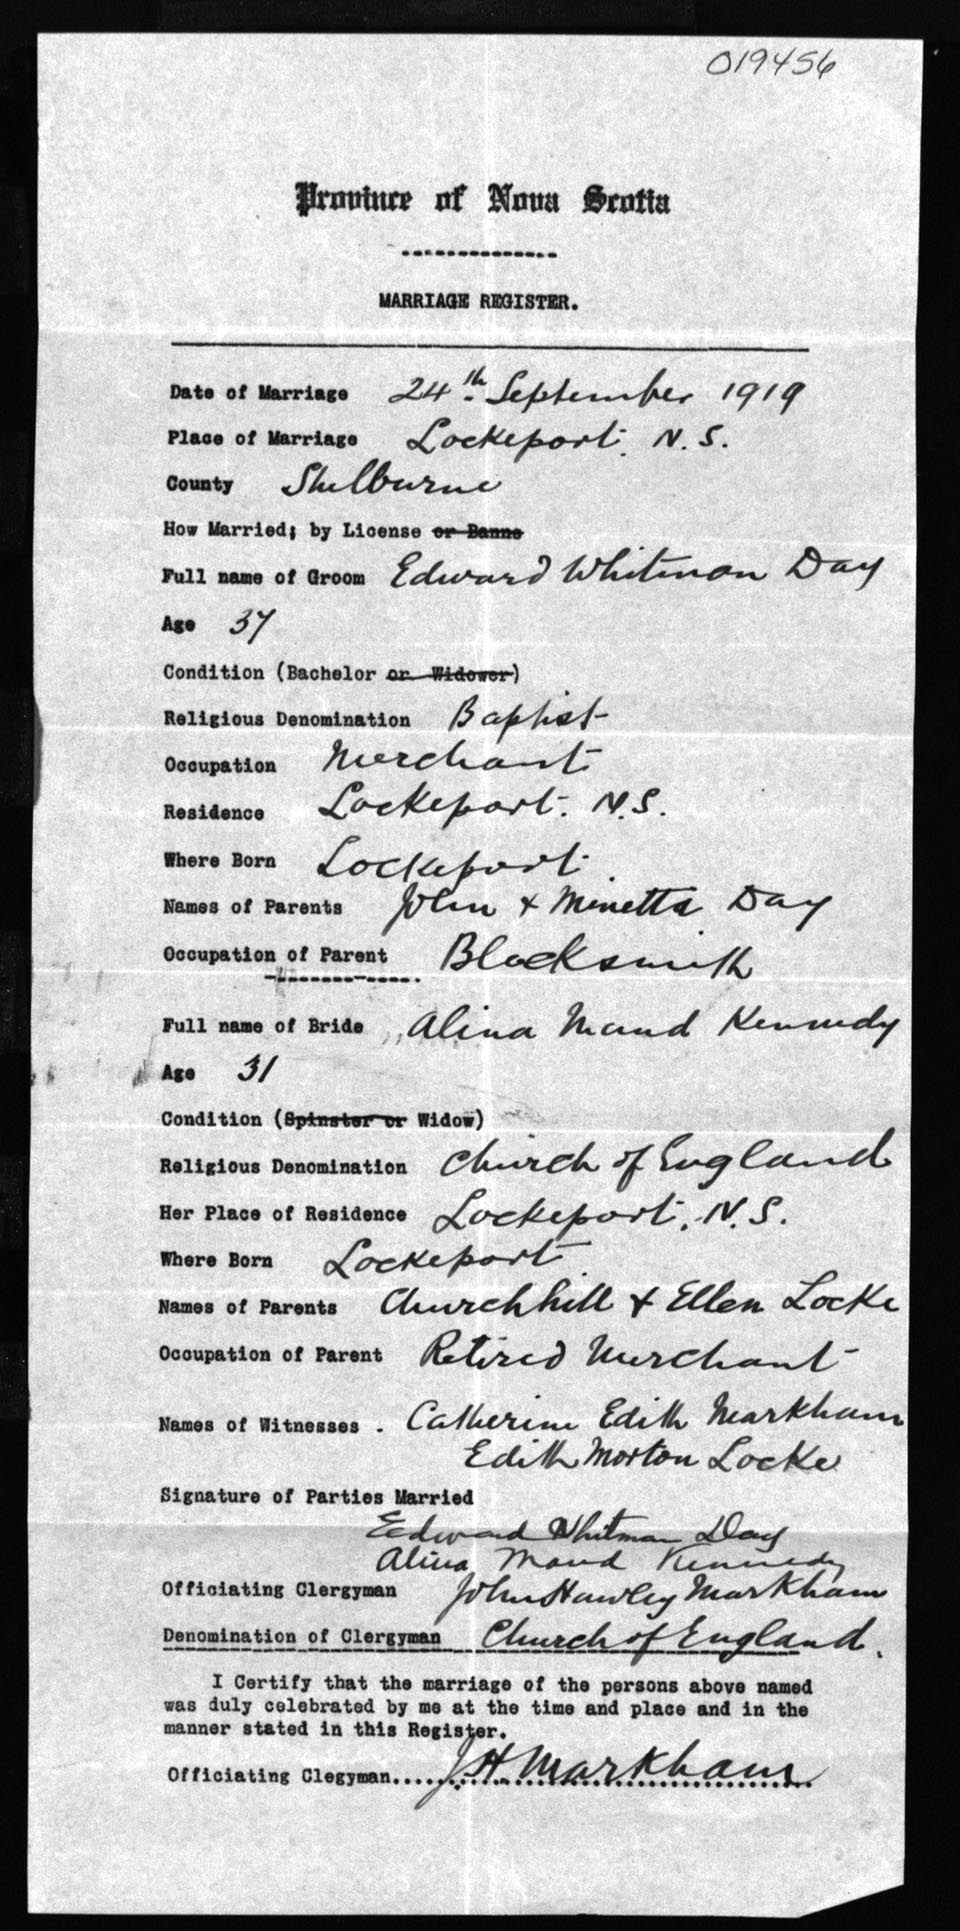 019456
Province of Nova Scotia
MARRIAGE REGISTER.
Date of Marriage 24th. September 1919
Place of Marriage Lockeport. N.S.
County Shelburne
How Married; by License or Banns
Full name of Groom Edward Whitman Day
Age 37
Condition (Bachelor or Widower)
Religious Denomination Baptist
Occupation Merchant
Residence Lockeport. N.S.
Where Born Lockeport
Names of Parents John + Minetta Day
Occupation of Parent Blacksmith
Full name of Bride Alina Maud Kennedy
Age 31
Condition (Spinster or Widow)
Religious Denomination Church of England
Her Place of Residence Lockeport, N.S.
Where Born Lockeport
Names of Parents Churchhill + Ellen Locke
Occupation of Parent Retired Merchant
Names of Witnesses . Catherine Edith Markham
Edith Morton Locke
Signature of Parties Married
Edward Whitman Day
Alina Maud Kennedy
Officiating Clergyman John Hawley Markham
Denomination of Clergyman Church of England.
I Certify that the marriage of the persons above named
was duly celebrated by me at the time and place and in the
manner stated in this Register.
Officiating Clegyman.... J H Markham